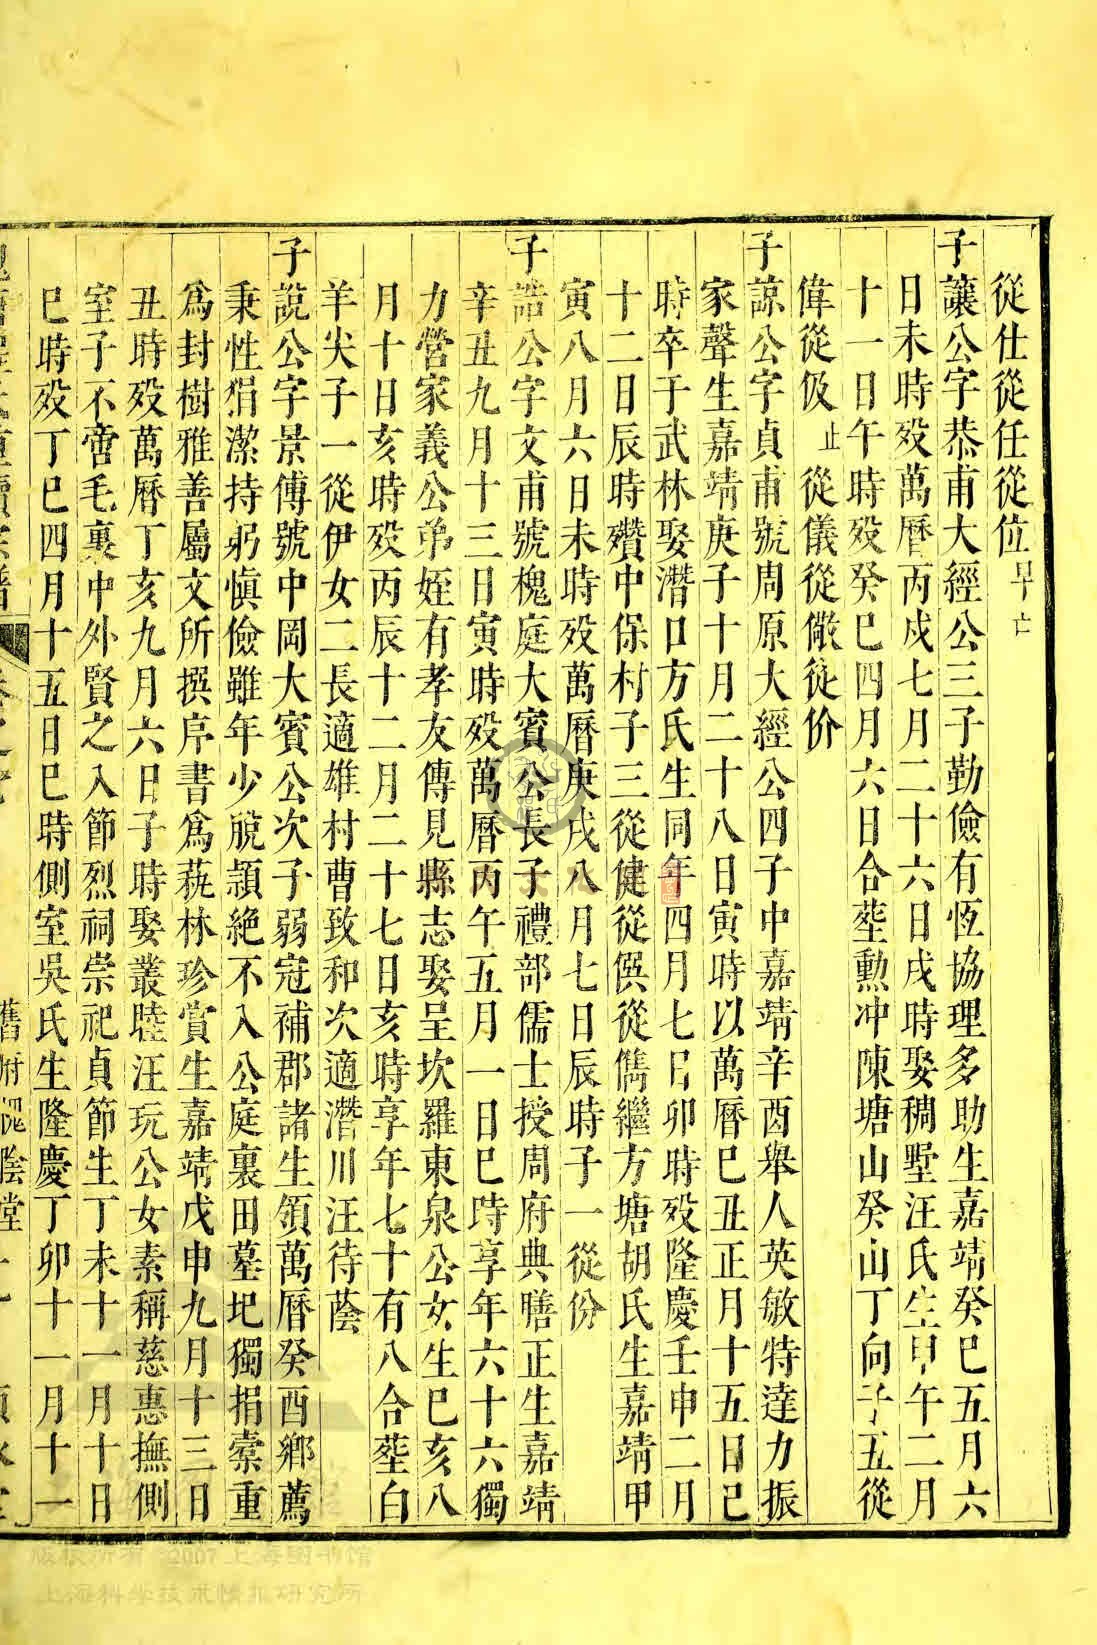 從仕從任從位早亡
子讓公字恭甫大經公三子勤儉有恆協理多助生嘉靖癸巳五月六
日未時歿萬曆丙戌七月二十六日戌時娶稠墅汪氏生甲午二月
十一日午時歿癸巳四月六日合塟勲冲陳塘山癸山丁向子五從
偉從伋止從儀從儆從价
子諒公字貞甫號周原大經公四子中嘉靖辛酉舉人英敏特達力振
家聲生嘉靖庚子十月二十八日寅時以萬曆己丑正月十五日巳
時卒于武林娶潛口方氏生同年四月七日卯時歿隆慶壬申二月
十二日辰時殯中保村子三從健從僎從儁繼方塘胡氏生嘉靖甲
寅八月六日未時歿萬曆庚戌八月七日辰時子一從份
子誥公字文甫號槐庭大賓公長子禮部儒士授周府典膳正生嘉靖
辛丑九月十三日寅時歿萬曆丙午五月一日巳時享年六十六獨
力營家義公弟姪有孝友傳見縣志娶呈坎羅東泉公女生己亥八
月十日亥時歿丙辰十二月二十七日亥時享年七十有八合塟白
羊尖子一從伊女二長適雄村曹致和次適潛川汪待蔭
子說公字景傅號中岡大賓公次子弱冠補郡諸生領萬曆癸酉鄉薦
秉性狷潔持躬愼儉雖年少脫頴絶不入公庭裏田墓圯獨捐槖重
爲封樹雅善屬文所撰序書爲蓺林珍賞生嘉靖戊申九月十三日
丑時歿萬曆丁亥九月六日子時娶叢睦汪玩公女素稱慈惠撫側
室子不啻毛裏中外賢之入節烈祠崇祀貞節生丁未十一月十日
巳時歿丁巳四月十五日巳時側室吳氏生隆慶丁卯十一月十一
舊府槐蔭堂
版权所有 2007 上海图书馆
上海科学技术情报研究所